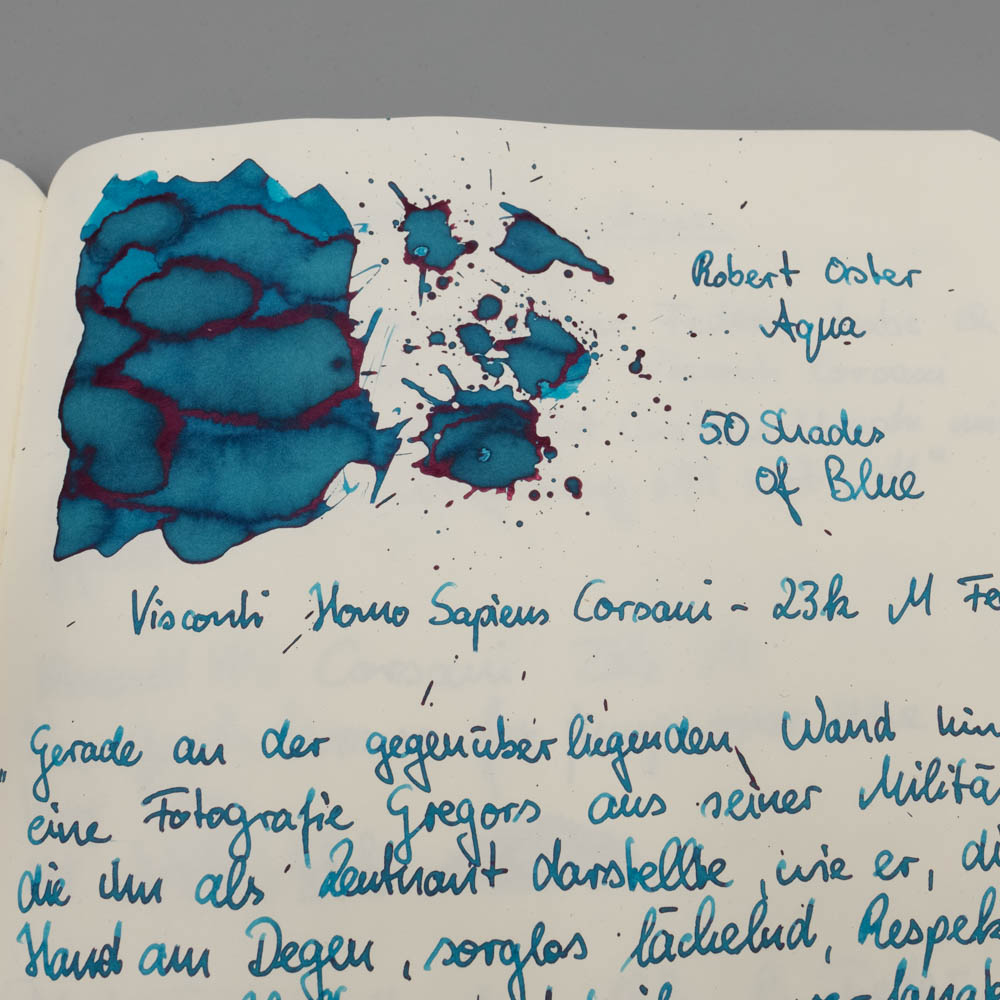 Robert Oster
Aqua
50 Shades
of Blue
Visconti Homo Sapiens Corsani - 23k M Fe
„Gerade an der gegenüberliegenden Wand hin
eine Fotografie Gregors aus seiner Militä
die ihn als Leutnant darstellte, wie er, di
Hand am Degen, sorglos lächelnd, Respek